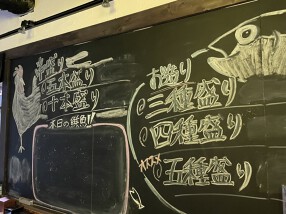 串盛り
五本盛り
十本盛り
本日の鮮魚!!
お造り
三種盛り
四種盛り
オススメ
五種盛り